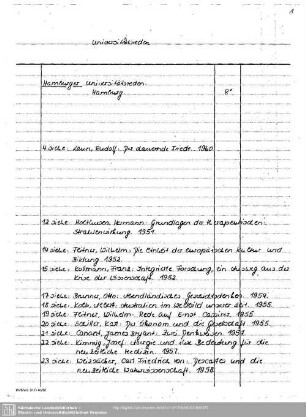 1
Universitätsreden
Hamburger Universitätsreden.
Hamburg. 8°
4 siehe: Laun, Rudolf: Der dauernde Friede. 1950
12 siehe: Holthusen, Hermann: Grundlagen der therapeutischen
Strahlenwirkung. 1951.
14 siehe: Flitner, Wilhelm: Die Einheit der europäischen Kultur und
Bildung. 1952.
15 siehe: Kollmann, Franz: Integrierte Forschung, ein Ausweg aus der
Krise der Wissenschaft. 1952.
17 siehe: Brunner, Otto: Abendländisches Geschichtsdenken. 1954.
18 siehe: Koch, Albert: im Weltbild unserer Zeit. 1955.
19 siehe: Flitner, Wilhelm: Rede auf Ernst Cassirer. 1955.
20 siehe: Schiller, Karl: Der Ökonom und die Gesellschaft. 1955.
21 siehe: Conant, James Bryant: Zwei Denkweisen. 1957.
22 siehe: Kimmig, Josef: und ihre Bedeutung für die
neuzeitliche Medizin. 1957.
23 siehe: Weizsäcker, Carl Friedrich von: Descartes und die
neuzeitliche Naturwissenschaft. 1958.